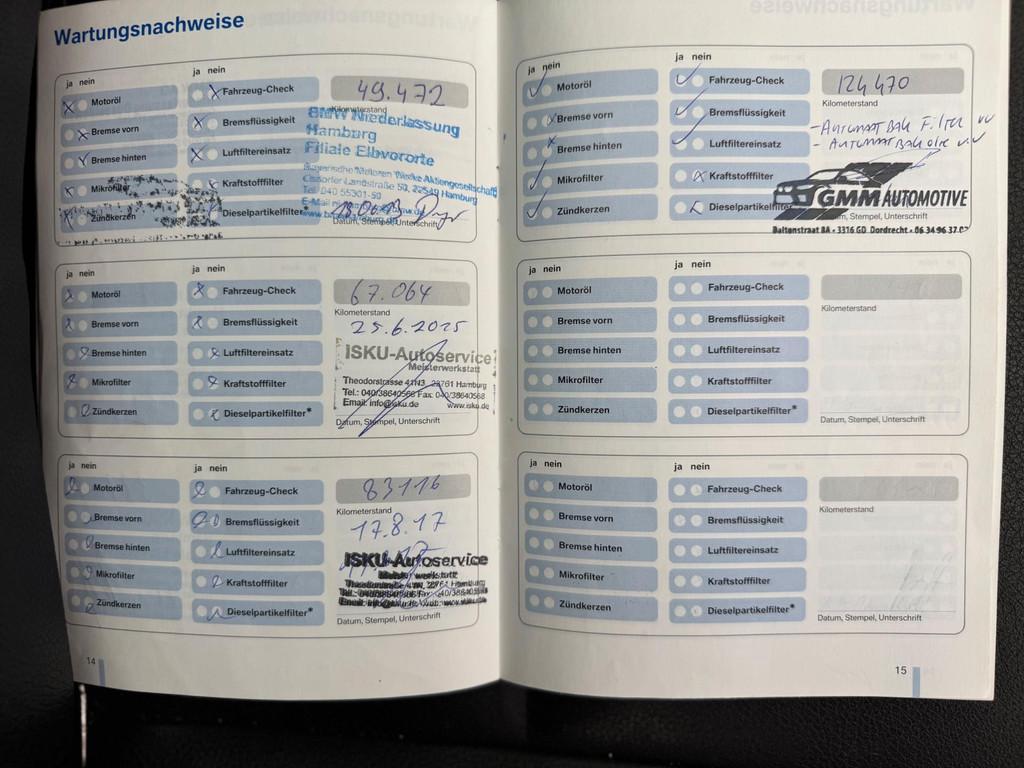 Wartungsnachweise
ja nein
ja nein
Motoröl
Fahrzeug-Check
49.472
Kilometerstand
Bremse vorn
Bremsflüssigkeit
BMW Niederlassung
Hamburg
Filiale Elbvororte
Bremse hinten
Luftfiltereinsatz
Bayerische Motoren Werke Aktiengesellschaft
Osdorfer Landstraße 50, 22549 Hamburg
Mikrofilter
Kraftstofffilter
Tel. 040 55301-50
Zündkerzen
Dieselpartikelfilter*
Datum, Stempel, Unterschrift
ja nein
ja nein
Motoröl
Fahrzeug-Check
67.064
Kilometerstand
Bremse vorn
Bremsflüssigkeit
25.6.2015
Bremse hinten
Luftfiltereinsatz
ISKU-Autoservice
Meisterwerkstatt
Mikrofilter
Kraftstofffilter
Theodorstrasse 41N3, 22761 Hamburg
Tel.: 040/38640566 Fax: 040/38640568
Email: info@isku.de www.isku.de
Zündkerzen
Dieselpartikelfilter*
Datum, Stempel, Unterschrift
ja nein
ja nein
Motoröl
Fahrzeug-Check
83116
Kilometerstand
Bremse vorn
Bremsflüssigkeit
17.8.17
Bremse hinten
Luftfiltereinsatz
ISKU-Autoservice
Meisterwerkstatt
Mikrofilter
Kraftstofffilter
Zündkerzen
Dieselpartikelfilter*
Datum, Stempel, Unterschrift
14
ja nein
ja nein
Motoröl
Fahrzeug-Check
124470
Kilometerstand
Bremse vorn
Bremsflüssigkeit
- AUTOMAATBAK FILTER
Bremse hinten
Luftfiltereinsatz
- AUTOMAATBAK OLIE
Mikrofilter
Kraftstofffilter
GMM AUTOMOTIVE
Zündkerzen
Dieselpartikelfilter
Stempel, Unterschrift
Baltenstraat 8A • 3316 GD Dordrecht • 06 34 96 37
ja nein
ja nein
Motoröl
Fahrzeug-Check
Kilometerstand
Bremse vorn
Bremsflüssigkeit
Bremse hinten
Luftfiltereinsatz
Mikrofilter
Kraftstofffilter
Zündkerzen
Dieselpartikelfilter*
Datum, Stempel, Unterschrift
ja nein
ja nein
Motoröl
Fahrzeug-Check
Kilometerstand
Bremse vorn
Bremsflüssigkeit
Bremse hinten
Luftfiltereinsatz
Mikrofilter
Kraftstofffilter
Zündkerzen
Dieselpartikelfilter*
Datum, Stempel, Unterschrift
15